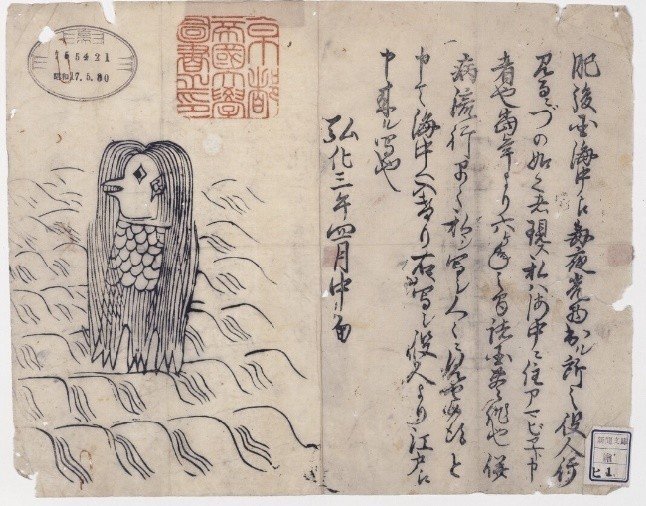 肥後国海中え毎夜光物出ル所之役人行
見るニづの如く者現ス私ハ海中ニ住アマビヱト申
者也当年より六ヶ年之間諸国豊作也併
病流行早々私シ写シ人々ニ見セ候得と
申て海中へ入けり右写シ役人より江戸え
申来ル写也
弘化三年四月中旬
京都
帝國大學
圖書之印
昭和17.5.30
新聞文庫
繪
ヒ1